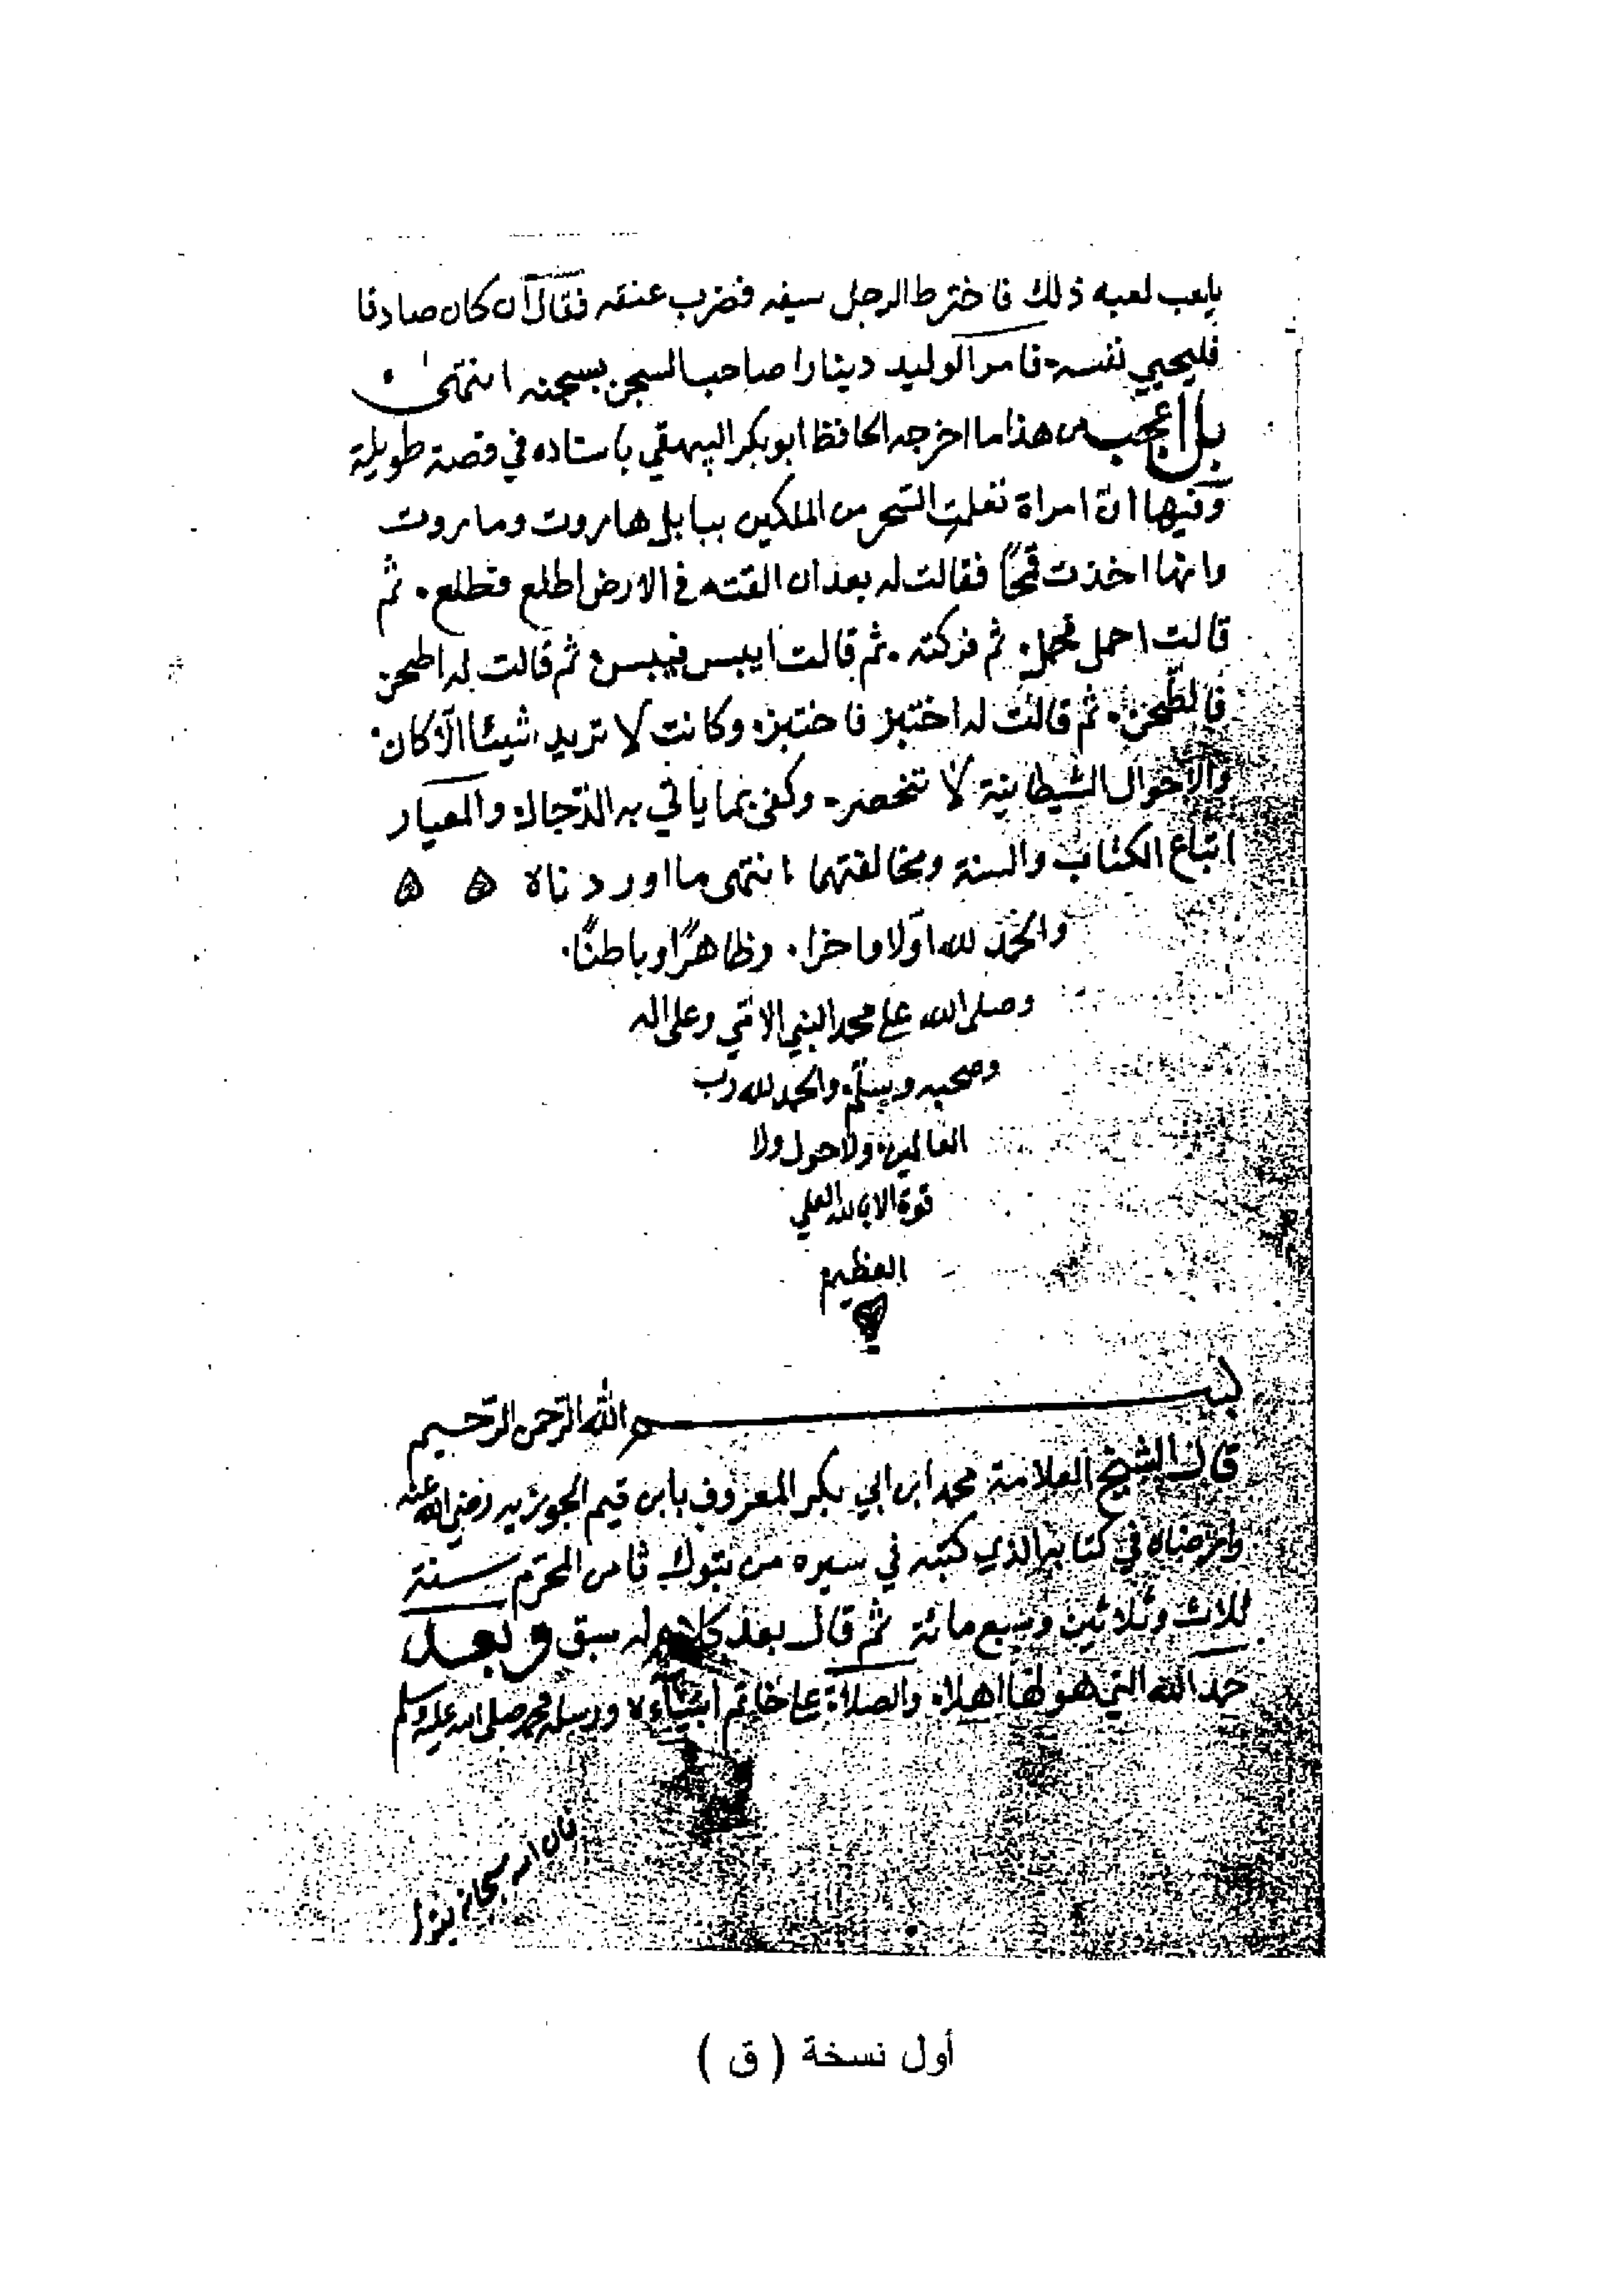 يلعب لعبه ذلك فاخترط الرجل سيفه فضرب عنقه فقال ان كان صادقا
فليحيي نفسه فامر الوليد دينارا صاحب السجن بسجنه انتهى
بل اعجب من هذا ما اخرجه الحافظ ابو بكر البيهقي باسناده في قصة طويلة
وفيها انّ امراة تعلمت السّحر من الملكين ببابل هاروت وماروت
وانها اخذت قمحًا فقالت له بعد ان القته في الارض اطلع فطلع. ثم
قالت احمل فحمل. ثم فركته. ثم قالت ايبس فيبس ثم قالت له اطحن
فاطّحن. ثم قالت له اختبز فاختبز. وكانت لا تريد شيئا الّا كان.
والاحوال الشيطانية لا تنحصر. وكفى بما ياتي به الدّجال. والمعيار
اتباع الكتاب والسنة ومخالفتهما انتهى ما اوردناه ۵ ۵
والحمد لله اوّلا واخرا. وظاهرًا وباطنًا.
وصلى الله على محمد النبي الامّي وعلى اله
وصحبه وسلّم. والحمد لله رب
العالمين. ولا حول ولا
قوة الا بالله العلي
العظيم
بسم الله الرّحمن الرّحيم
قال الشيخ العلامة محمد ابن ابي بكر المعروف بابن قيم الجوزيه رضي الله عنه
وارضاه في كتابه الذي كتبه في سيره من تبوك ثامن المحرّم سنة
ثلاث وثلاثين وسبع مائة ثم قال بعد كلام له سبق وبعد
حمد الله التي هو لها اهلا. والصلاة على خاتم انبياءه ورسله محمد صلى الله عليه وسلم
فان الله سبحانه يقول
أول نسخة ( ق )